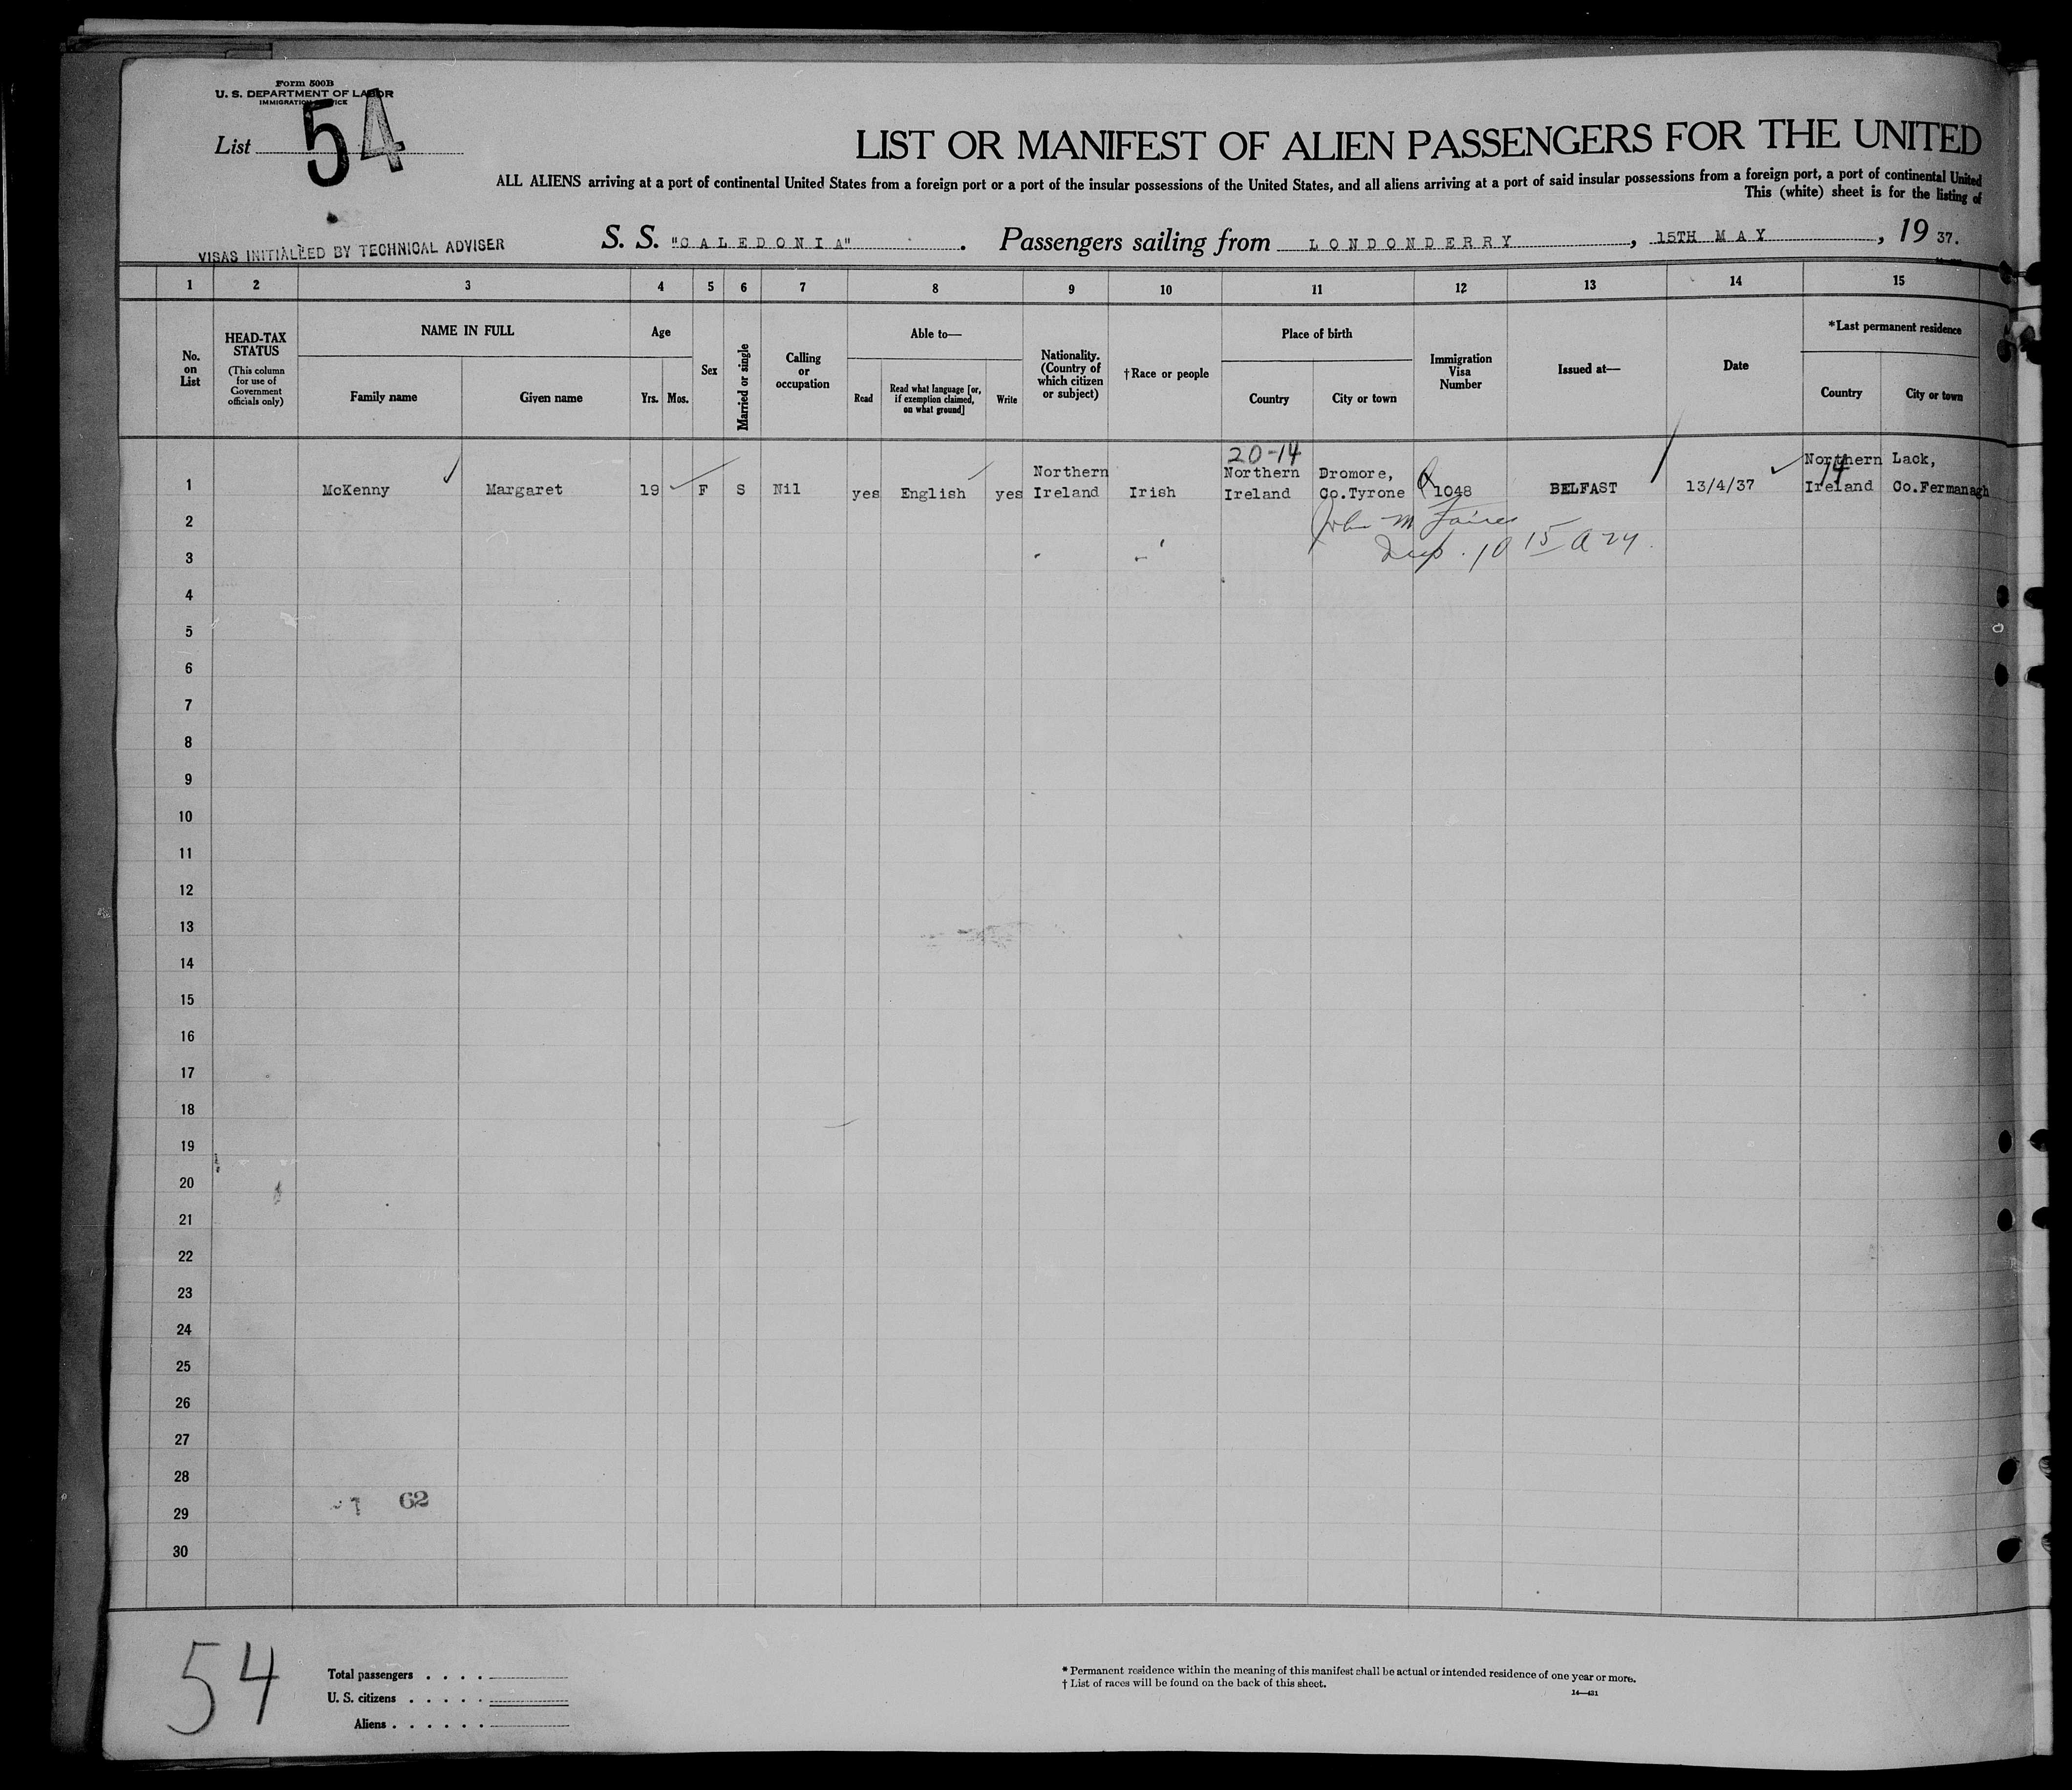 Form 500B
U. S. DEPARTMENT OF LABOR
IMMIGRATION SERVICE
List 54
LIST OR MANIFEST OF ALIEN PASSENGERS FOR THE UNITED
ALL ALIENS arriving at a port of continental United States from a foreign port or a port of the insular possessions of the United States, and all aliens arriving at a port of said insular possessions from a foreign port, a port of continental United
This (white) sheet is for the listing of
VISAS INITIALLED BY TECHNICAL ADVISER
S. S. "CALEDONIA" . Passengers sailing from LONDONDERRY, 15TH MAY, 19 37.
1 2 3 4 5 6 7 8 9 10 11 12 13 14 15
No. on List
HEAD-TAX STATUS
(This column for use of Government officials only)
NAME IN FULL
Family name Given name
Age
Yrs. Mos.
Sex
Married or single
Calling or occupation
Able to—
Read
Read what language [or, if exemption claimed, on what ground]
Write
Nationality. (Country of which citizen or subject)
†Race or people
Place of birth
Country City or town
Immigration Visa Number
Issued at—
Date
*Last permanent residence
Country City or town
20-14
1 McKenny Margaret 19 F S Nil yes English yes Northern Ireland Irish Northern Ireland Dromore, Co.Tyrone 1048 BELFAST 13/4/37 Northern Ireland Lack, Co.Fermanagh
14
2 John M
3
4
5
6
7
8
9
10
11
12
13
14
15
16
17
18
19
20
21
22
23
24
25
26
27
28
62
29
30
54
Total passengers . . . .
U. S. citizens . . . . .
Aliens . . . . . .
* Permanent residence within the meaning of this manifest shall be actual or intended residence of one year or more.
† List of races will be found on the back of this sheet.
14—431